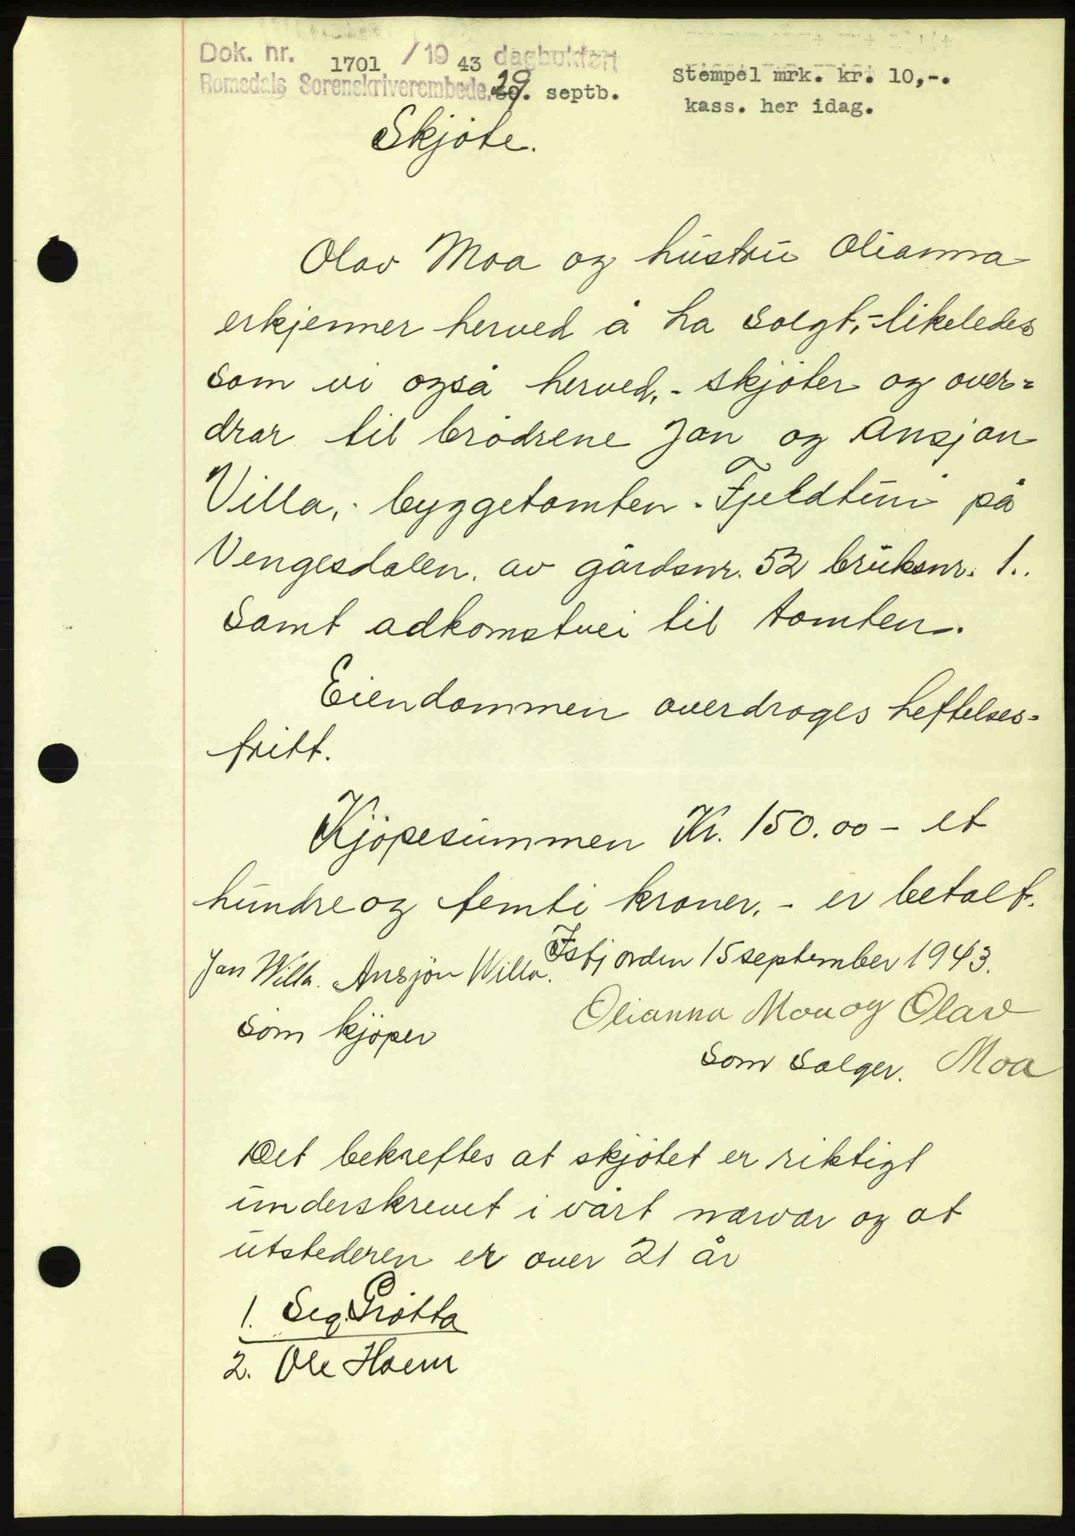 Dok. nr. 1701 / 19 43 dagbokført
Romsdals Sorenskriverembede, 29. septb.
Stempel mrk. kr. 10,-.
kass. her idag.
Skjöte.
Olav Moa og hustru Olianna
erkjenner herved å ha solgt, - likeledes
som vi også herved, - skjöter og over=
drar til brödrene Jan og Ansjon
Villa, - byggetomten - Fjeldtun på
Vengesdalen. av gårdsnr. 52 bruksnr. 1..
Samt adkomstvei til tomten.
Eiendommen overdrages heftelses=
fritt.
Kjöpesummen Kr. 150.00 - et
hundre og femti kroner, - er betalt.
Isfjorden 15 september 1943.
Jan Willa. Ansjön Willa.
som kjöper
Olianna Moa og Olav
Moa
som selger.
Det bekreftes at skjötet er riktigt
underskrevet i vårt nærvær og at
utstederen er over 21 år
1. Seq. Grötta
2. Ole Hoem